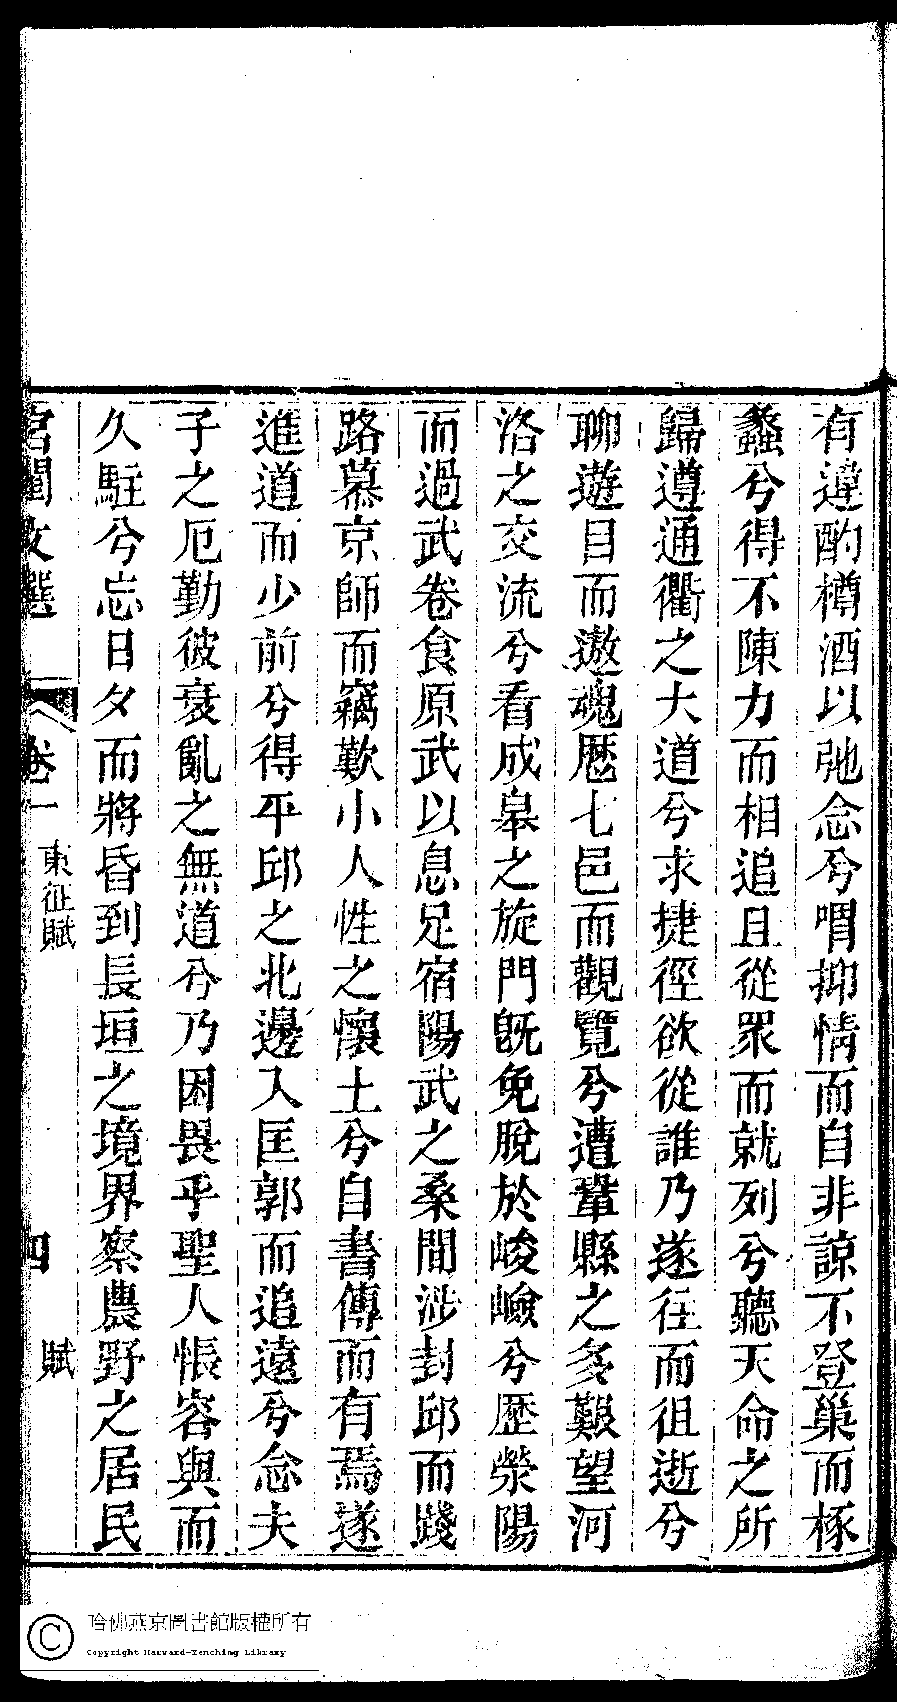 有違酌樽酒以弛念兮喟抑情而自非諒不登巢而椓
蠡兮得不陳力而相追且從眾而就列兮聽天命之所
歸遵通衢之大道兮求捷徑欲從誰乃遂往而徂逝兮
聊遊目而遨魂歷七邑而觀覽兮遭鞏縣之多艱望河
洛之交流兮看成皋之旋門旣免脫於峻嶮兮歷滎陽
而過武卷食原武以息足宿陽武之桑間涉封邱而踐
路慕京師而竊歎小人性之懷土兮自書傳而有焉遂
進道而少前兮得平邱之北邊入匡郭而追遠兮念夫
子之厄勤彼衰亂之無道兮乃困畏乎聖人悵容與而
久駐兮忘日夕而將昏到長垣之境界察農野之居民
宮閨文選
卷一
東征賦
四
賦
哈佛燕京圖書館版權所有
Copyright Harvard-Yenching Library